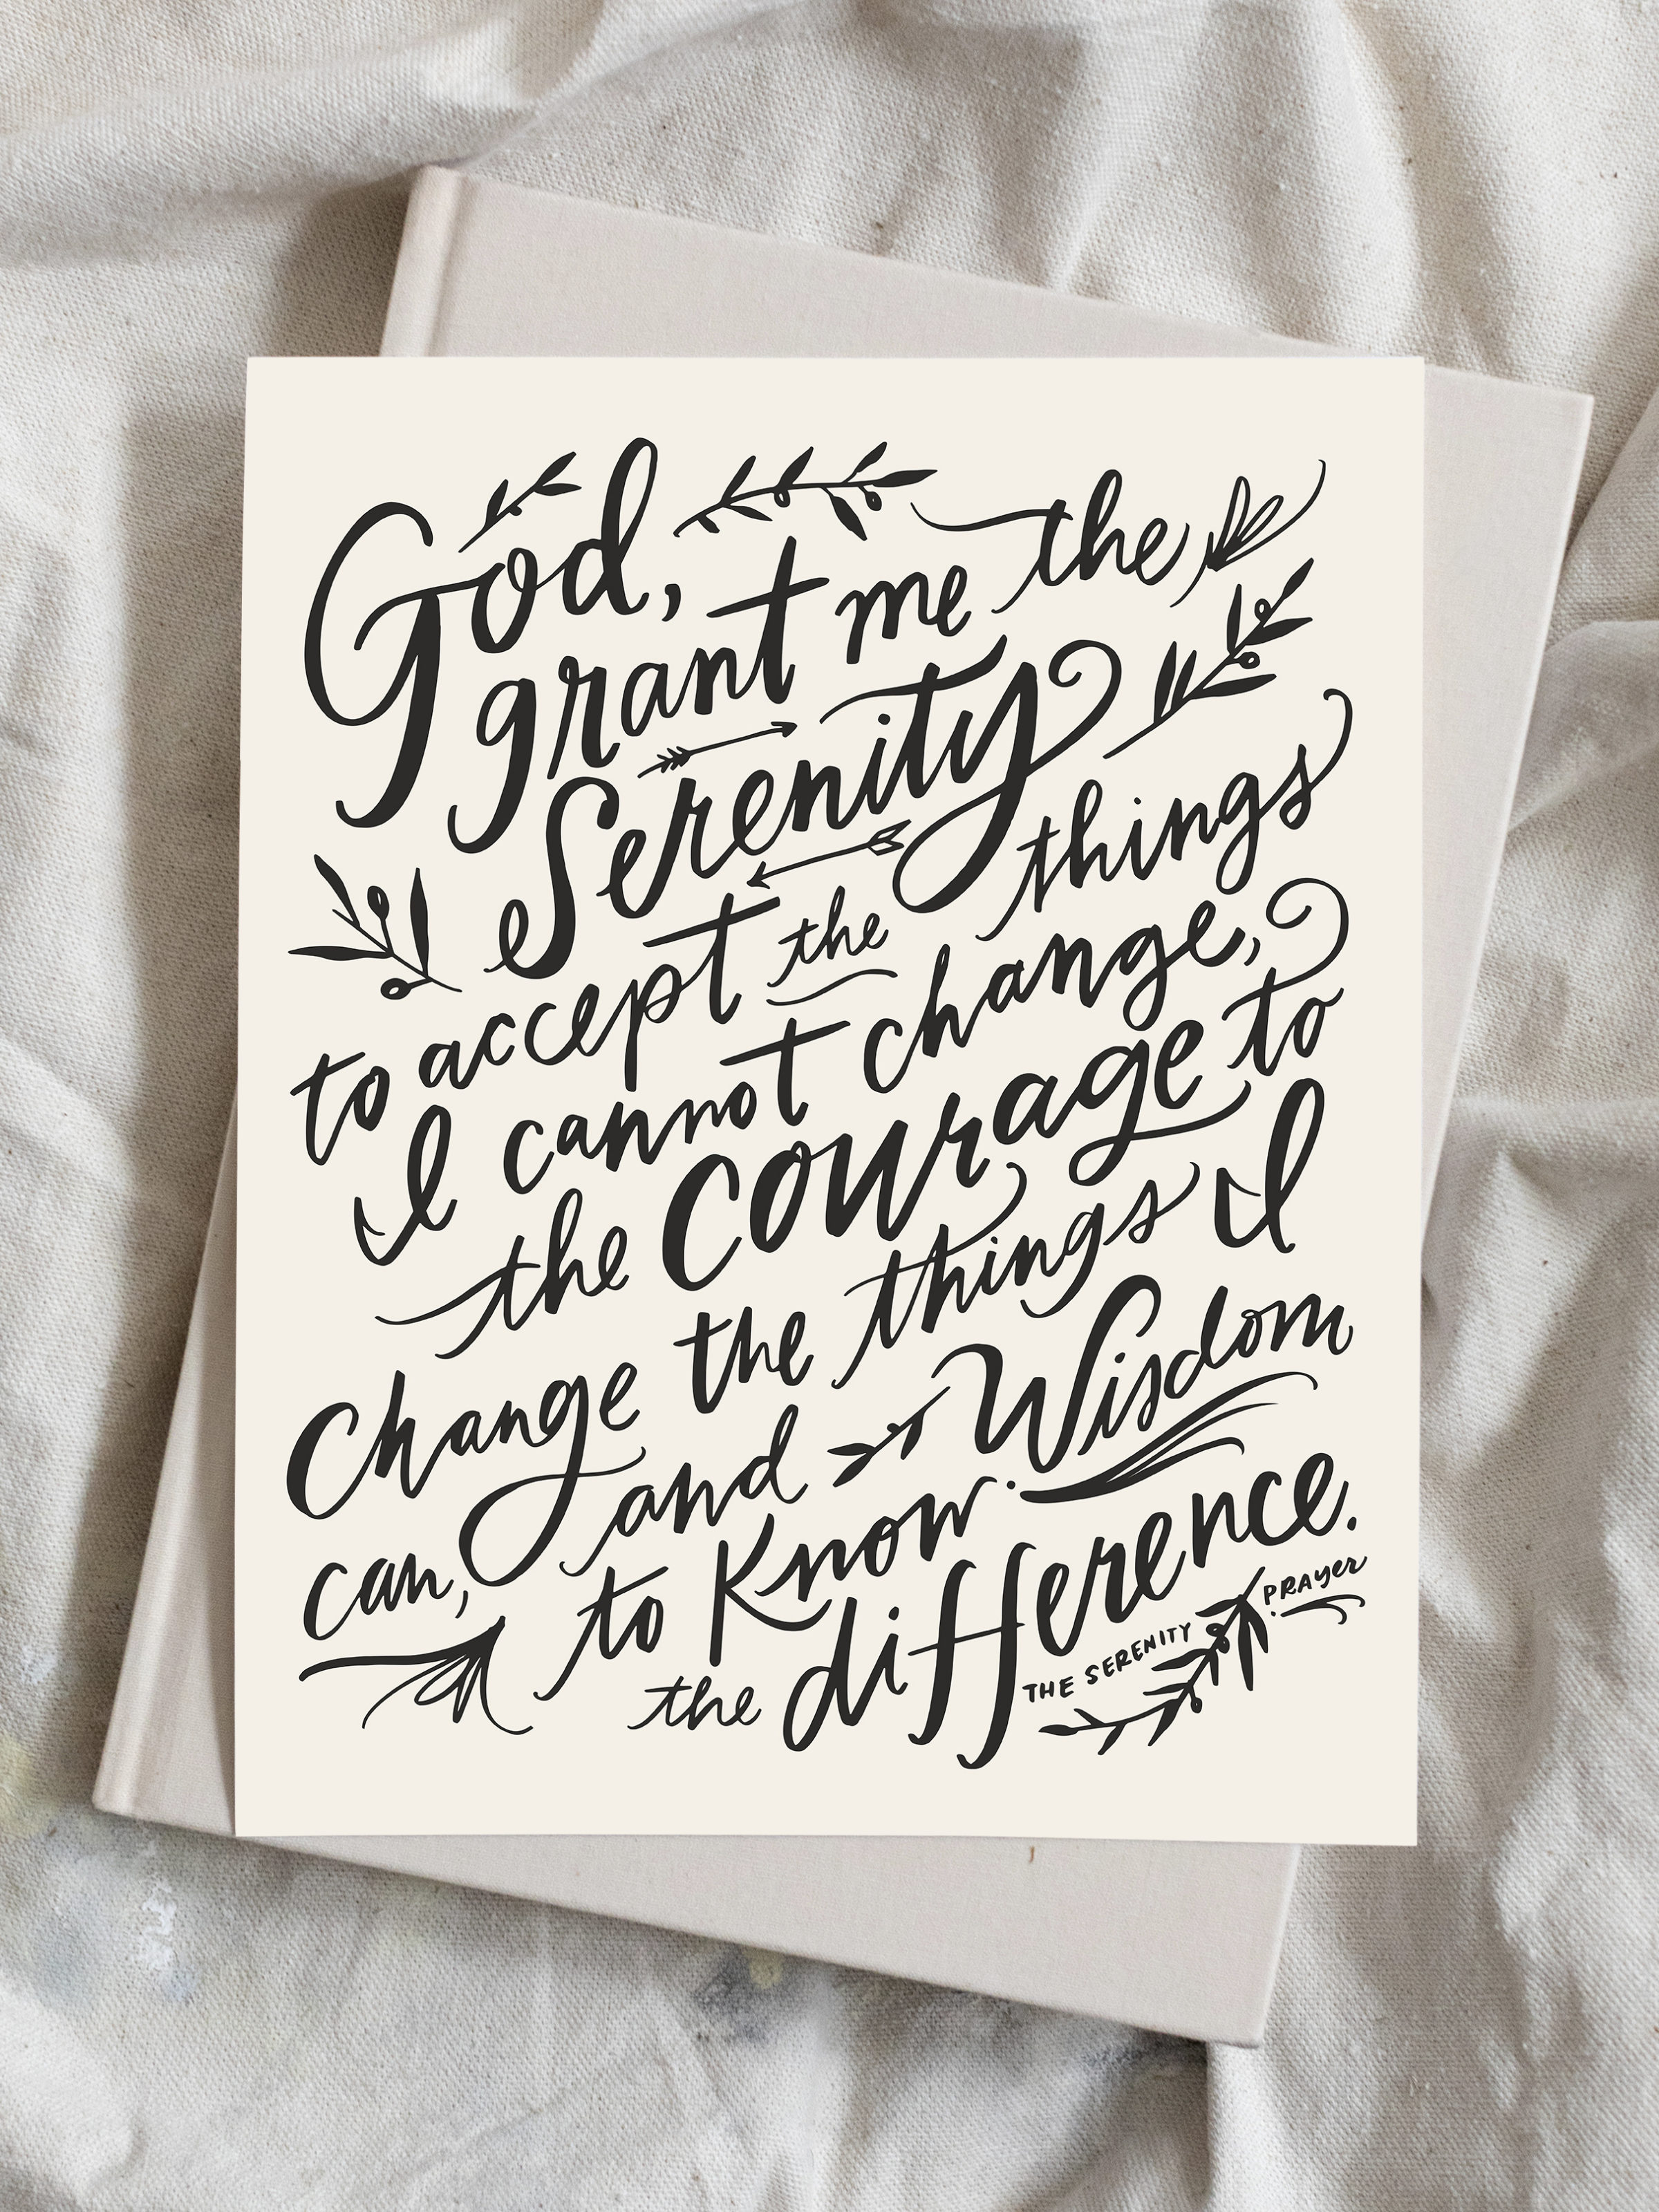 God,
grant me the
Serenity
to accept the things
I cannot change,
the courage to
Change the things I
can, and Wisdom
to Know
the difference.
THE SERENITY PRAYer